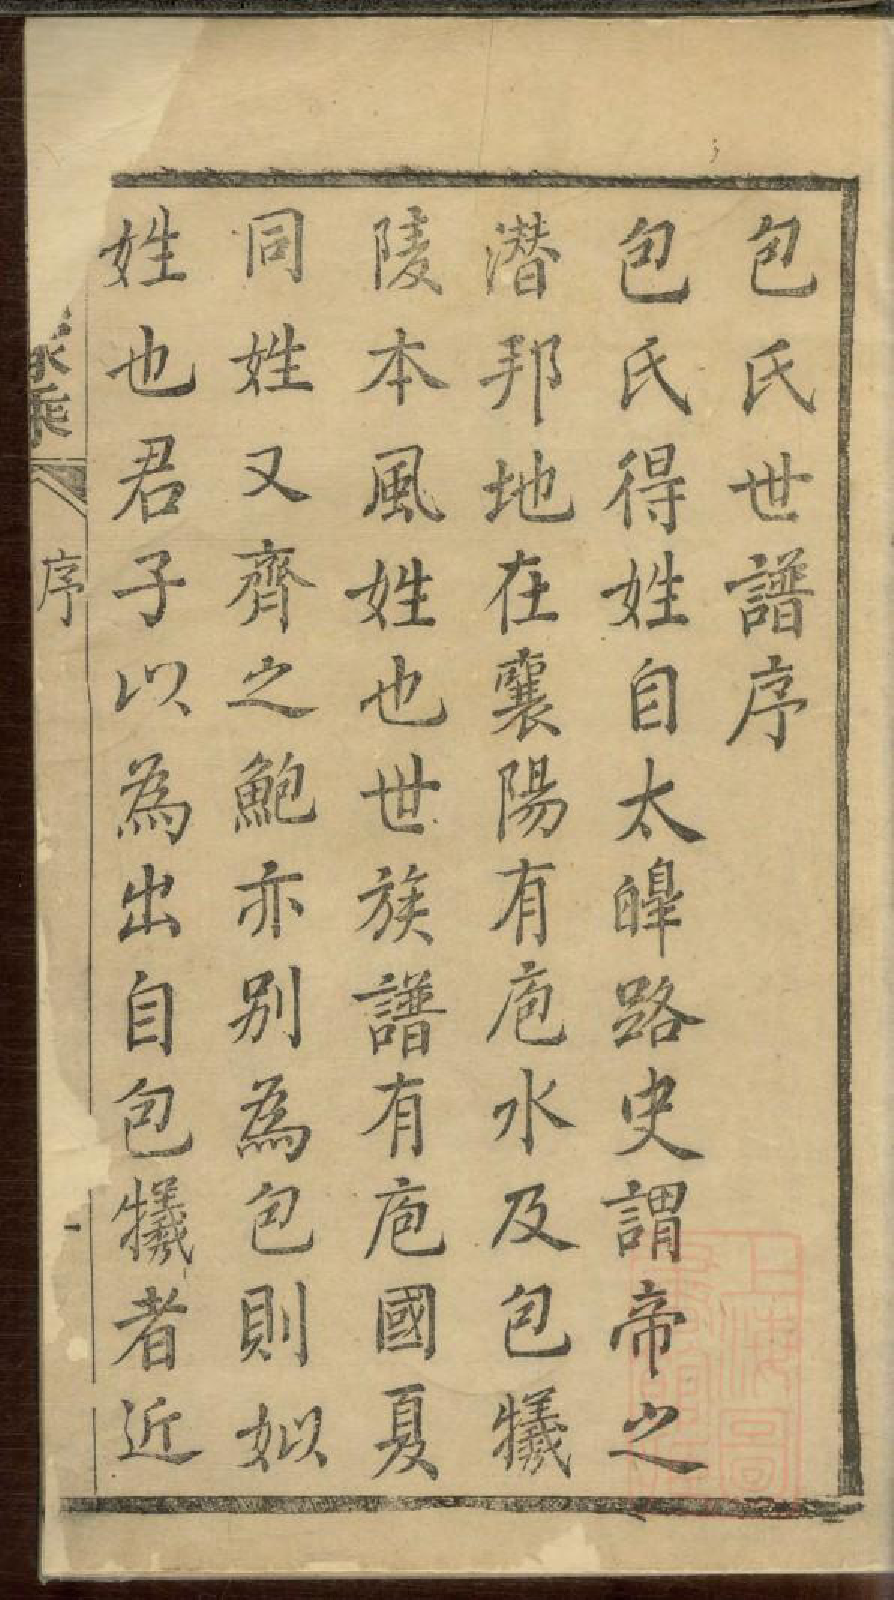 包氏世譜序
包氏得姓自太皥路史謂帝之
潛邦地在襄陽有庖水及包犧
陵本風姓也世族譜有庖國夏
同姓又齊之鮑亦別為包則姒
姓也君子以為出自包犧者近
家乘
序
上海圖書館藏